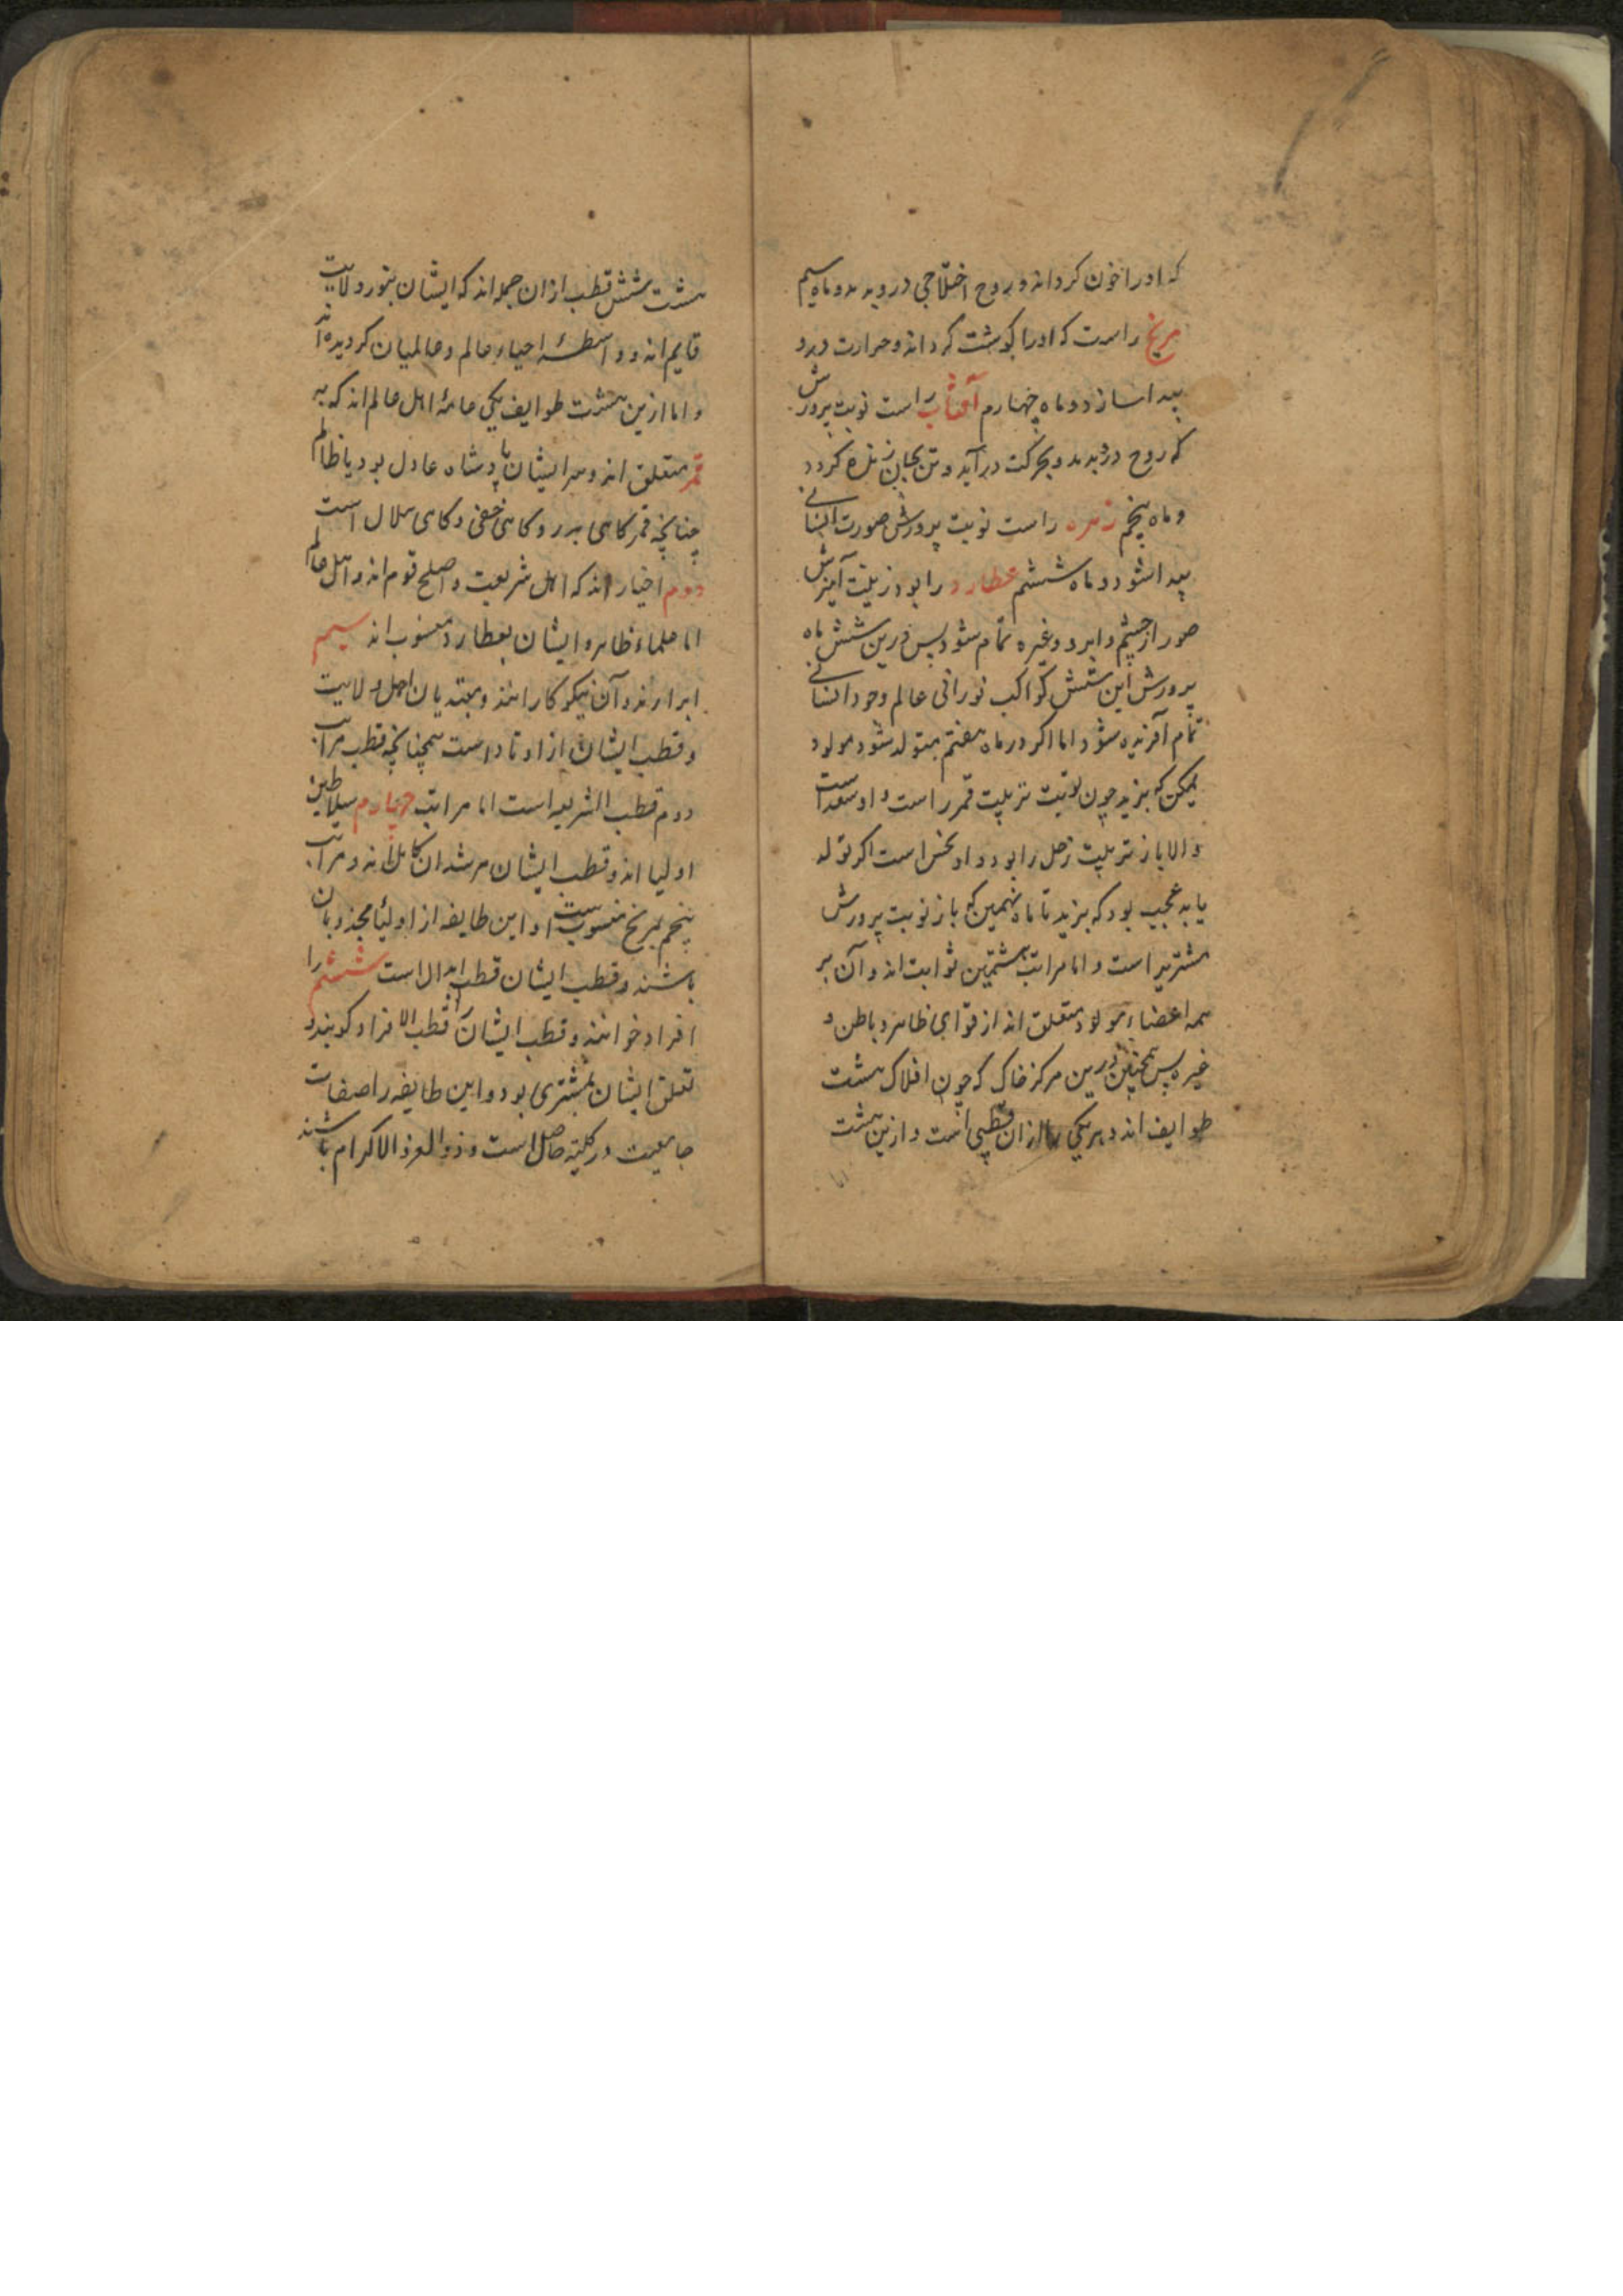 که او را خون کرداند و روح اختلاجی در وی بدمد و ماه سیم
مریخ راست که او را کوشت کرداند و حرارت درو
پیدا سازد و ماه چهارم آفتاب راست نوبت پرورش
که روح درو بدمد و بحرکت درآید و تن بجان زنده کردد
و ماه پنجم زهره راست نوبت پرورش صورت انسانی
پیدا شود و ماه ششم عطارد را بود تربیت آمیزش
صور از چشم و ابرو و غیره تمام شود پس درین شش ماه
پرورش این شش کواکب نورانی عالم وجود انسانی
تمام آفریده شود اما اکر در ماه هفتم متولد شود مولود
ممکن که بزید چون نوبت تربیت قمر راست و او سعد است
والا باز تربیت زحل را بود و او نحس است اکر تولد
یابد عجیب بود که بزید تا ماه نهمین که باز نوبت پرورش
مشتریراست و اما مراتب هشتمین ثوابت اند و آن بر
همه اعضاء مولود متعلق اند از قوای ظاهر و باطن و
غیره پس همچنین درین مرکز خاک که چون افلاک هشت
طوایف اند و هر یکی را ازان قطبی است و ازین هشت
اما
هشت شش قطب ازان جمله اند که ایشان بنور ولایت
قایم اند و واسطهٔ احیاء عالم و عالمیان کردیده اند
و اما ازین هشت طوایف یکی عامهٔ اهل عالم اند که به
قمر متعلق اند و سر ایشان پادشاه عادل بود یا ظالم
چنانچه قمر کاهی بدر و کاهی خفی و کاهی هلال است
دوم اخیار اند که اهل شریعت و اصلح قوم اند و اهل عالم
اما علماء ظاهر و ایشان بعطارد منسوب اند سیم
ابرارند و آن نیکوکارانند و مبتدیان اهل ولایت
و قطب ایشان از اوتاد است همچنانچه قطب مراتب
دوم قطب الشریعه است اما مراتب چهارم سلاطین
اولیا اند و قطب ایشان مرشدان کامل اند و مراتب
پنجم بمریخ منسوبست و این طایفه از اولیا مجذوبان
باشند و قطب ایشان قطب ابدال است ششم را
افراد خوانند و قطب ایشان را قطب الافراد کویند و
تعلق ایشان بمشتری بود و این طایفه را صفات
جامعیت در کلیه حاصل است و ذوالعز و الاکرام باشند